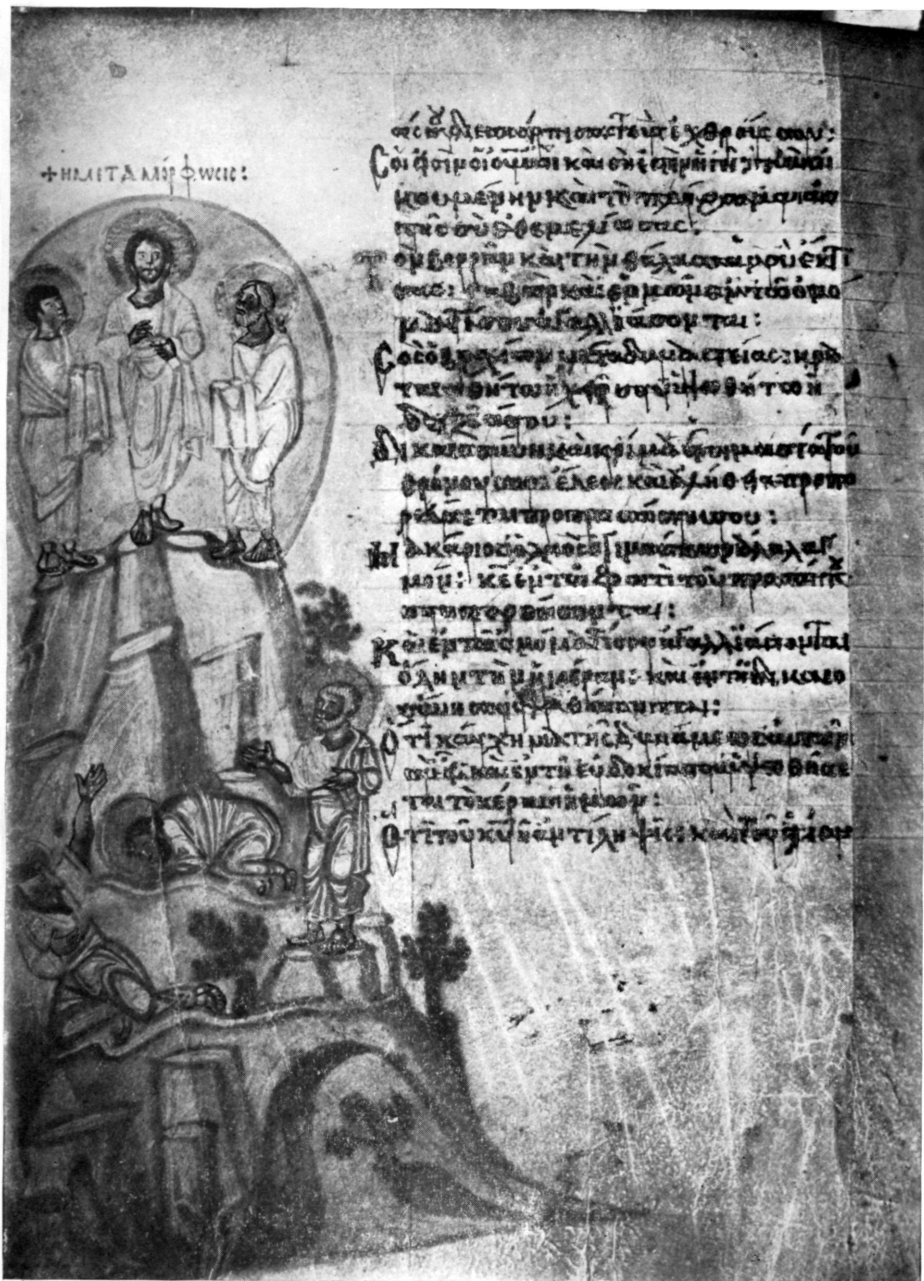 + Η ΜΕΤΑΜΟΡΦΩΣΙΣ:
διεσκόρπισας τοὺς ἐχθρούς σου:
Σοί εἰσιν οἱ οὐνοὶ καὶ σή ἐστιν ἡ γῆ: τὴν οἰ
κουμένην καὶ τὸ πλήρωμα αὐ
τῆς σὺ ἐθεμελίωσας:
Τὸν βορρᾶν καὶ τὴν θάλασσαν σὺ ἔκτι
σας: Θαβὼρ καὶ ἑρμὼν ἐν τῷ ὀνό
ματί σου ἀγαλλιάσονται:
Σὸς ὁ βραχίων μετὰ δυναστείας: κρα
ταιωθήτω ἡ χείρ σου ὑψωθήτω ἡ
δεξιά σου:
Δικαιοσύνη καὶ κρίμα ἑτοιμασία τοῦ
θρόνου σου: ἔλεος καὶ ἀλήθεια προπο
ρεύσεται πρὸ προσώπου σου:
Μακάριος ὁ λαὸς ὁ γινώσκων ἀλαλαγ
μόν: κε ἐν τῷ φωτὶ τοῦ προσώπου
σου πορεύσονται:
Καὶ ἐν τῷ ὀνόματί σου ἀγαλλιάσονται
ὅλην τὴν ἡμέραν: καὶ ἐν τῇ δικαιο
σύνῃ σου ὑψωθήσονται:
Ὅτι καύχημα τῆς δυνάμεως αὐτῶν
σὺ εἶ καὶ ἐν τῇ εὐδοκίᾳ σου ὑψωθήσε
ται τὸ κέρας ἡμῶν:
Ὅτι τοῦ κυ ἡ ἀντίληψις: καὶ τοῦ ἁγίου